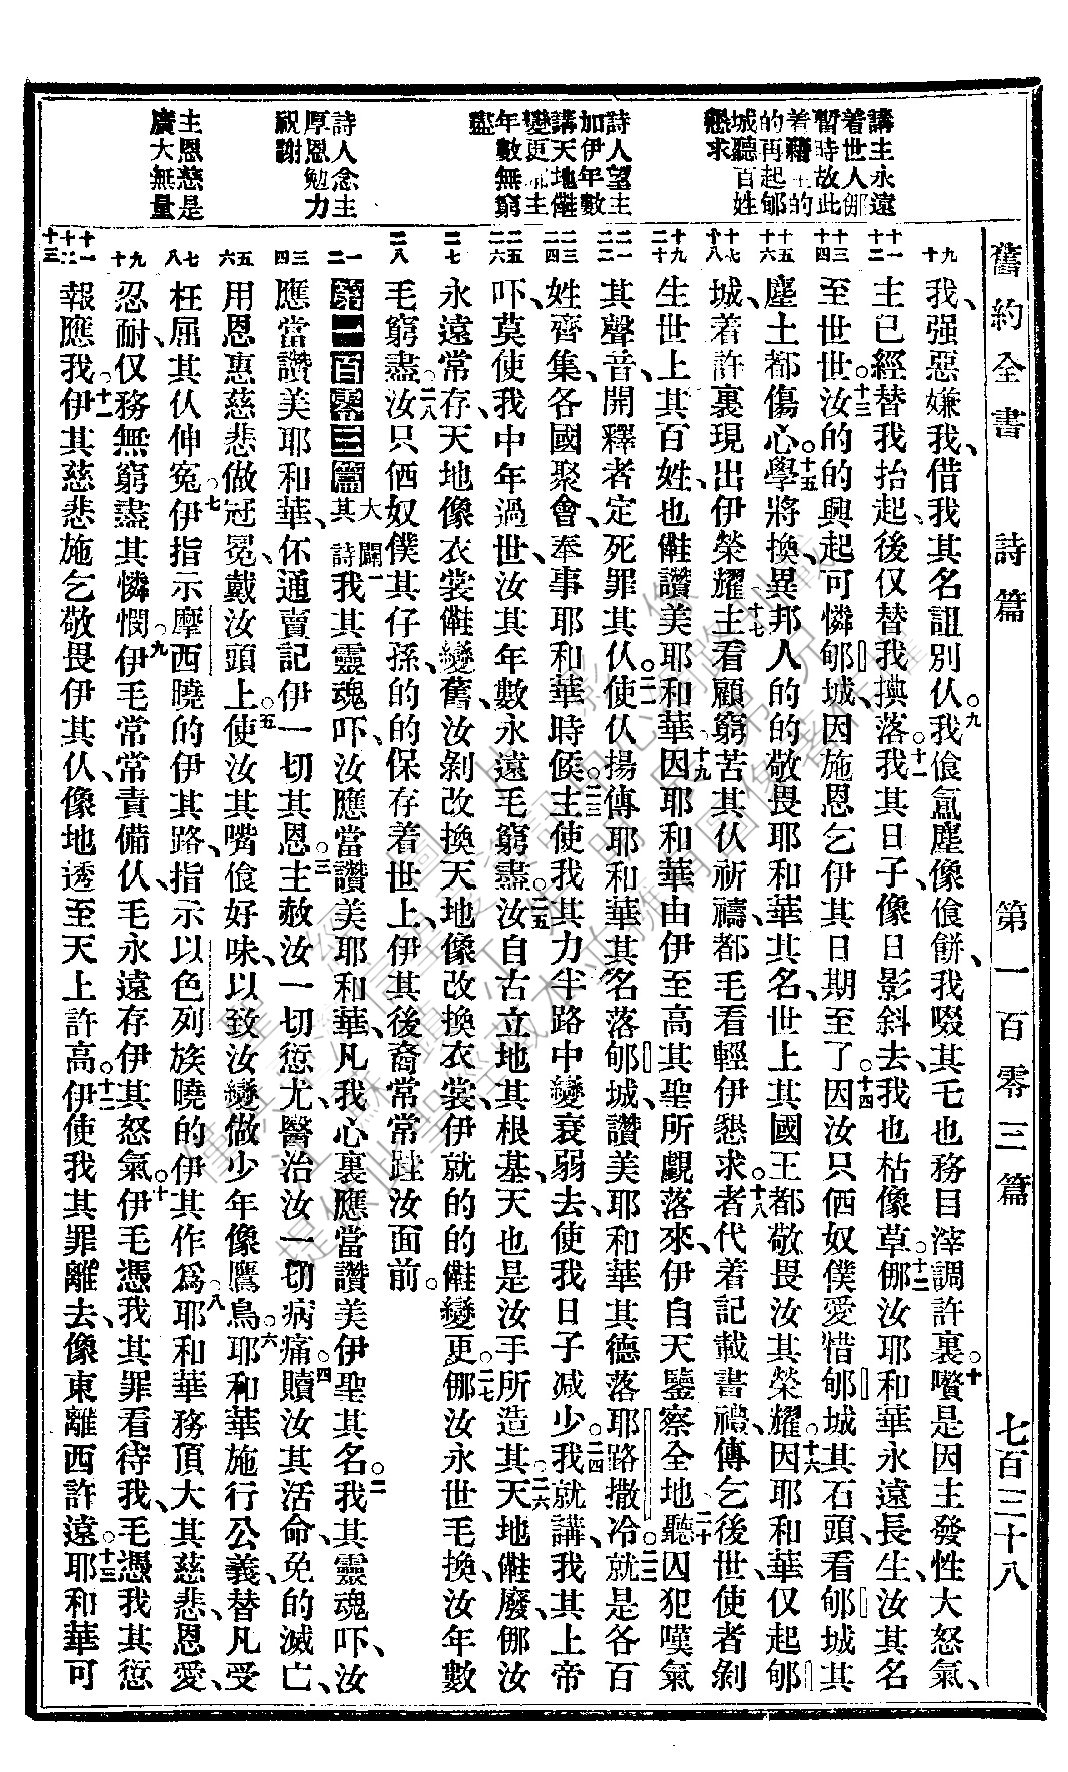 舊約全書　詩篇　第一百零三篇　七百三十八
講主永遠
着世人㑚
暫時故此
的再起郇
城聽百姓
懇求
詩人望主
加伊年數
講天地𠆧
年數無窮
盡
詩人念主
厚恩勉力
祝謝
主恩慈是
廣大無量
我、强惡嫌我、借我其名詛別仈。九我飡氲塵像飡餅、我啜其乇也務目滓調許裏。十嚽是因主發性大怒氣、
主已經替我抬起、後仅替我㩇落。十一我其日子、像日影斜去、我也枯像草。十二㑚汝耶和華永遠長生、汝其名
至世世。十三汝的的興起可憐郇城、因施恩乞伊其日期至了。十四因汝只㑚奴僕愛惜郇城其石頭、看郇城其
塵土都傷心。十五學將換、異邦人的的敬畏耶和華其名、世上其國王都敬畏汝其榮耀。十六因耶和華仅起郇
城、着許裏現出伊榮耀。十七主看顧窮苦其仈祈禱、都毛看輕伊懇求。十八者代着記載書禮、傳乞後世、使者剝
生世上其百姓、也𠆧讚美耶和華。十九因耶和華由伊至高其聖所覷落來、伊自天鑒察全地。二十聽囚犯嘆氣
其聲音、開釋者定死罪其仈。二一使仈揚傳耶和華其名落郇城、讚美耶和華其德落耶路撒冷。二二就是各百
姓齊集、各國聚會、奉事耶和華時候。二三主使我其力半路中變衰弱去、使我日子減少。二四我就講、我其上帝
吓、莫使我中年過世、汝其年數永遠毛窮盡。二五汝自古立地其根基、天也是汝手所造其。二六天地𠆧廢、㑚汝
永遠常存、天地像衣裳𠆧變舊、汝剝改換天地、像改換衣裳、伊就的的𠆧變更。二七㑚汝永世毛換、汝年數
毛窮盡。二八汝只㑚奴僕其仔孫、的的保存着世上、伊其後裔常常跬汝面前。
第一百零三篇 大闢其詩 一我其靈魂吓、汝應當讚美耶和華、凡我心裏應當讚美伊聖其名。二我其靈魂吓、汝
應當讚美耶和華、伓通賣記伊一切其恩。三主赦汝一切愆尤、醫治汝一切病痛。四贖汝其活命、免的滅亡、
用恩惠慈悲做冠冕、戴汝頭上。五使汝其嘴飡好味、以致汝變做少年像鷹鳥。六耶和華施行公義、替凡受
枉屈其仈伸冤。七伊指示摩西曉的伊其路、指示以色列族曉的伊其作爲。八耶和華務頂大其慈悲、恩愛、
忍耐、仅務無窮盡其憐憫。九伊毛常常責備仈、毛永遠存伊其怒氣。十伊毛憑我其罪看待我、毛憑我其愆
報應我。十一伊其慈悲施乞敬畏伊其仈、像地透至天上許高。十二伊使我其罪離去、像東離西許遠。十三耶和華可